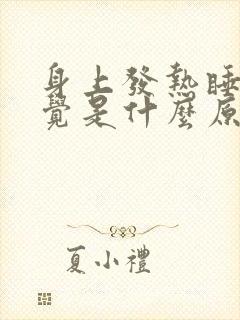 身上發熱睡
覺是什麼原
夏小禮